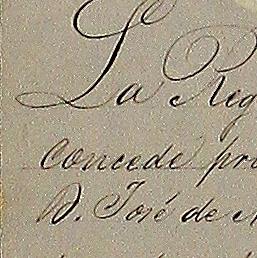 La Reg
concede pri
D. José de